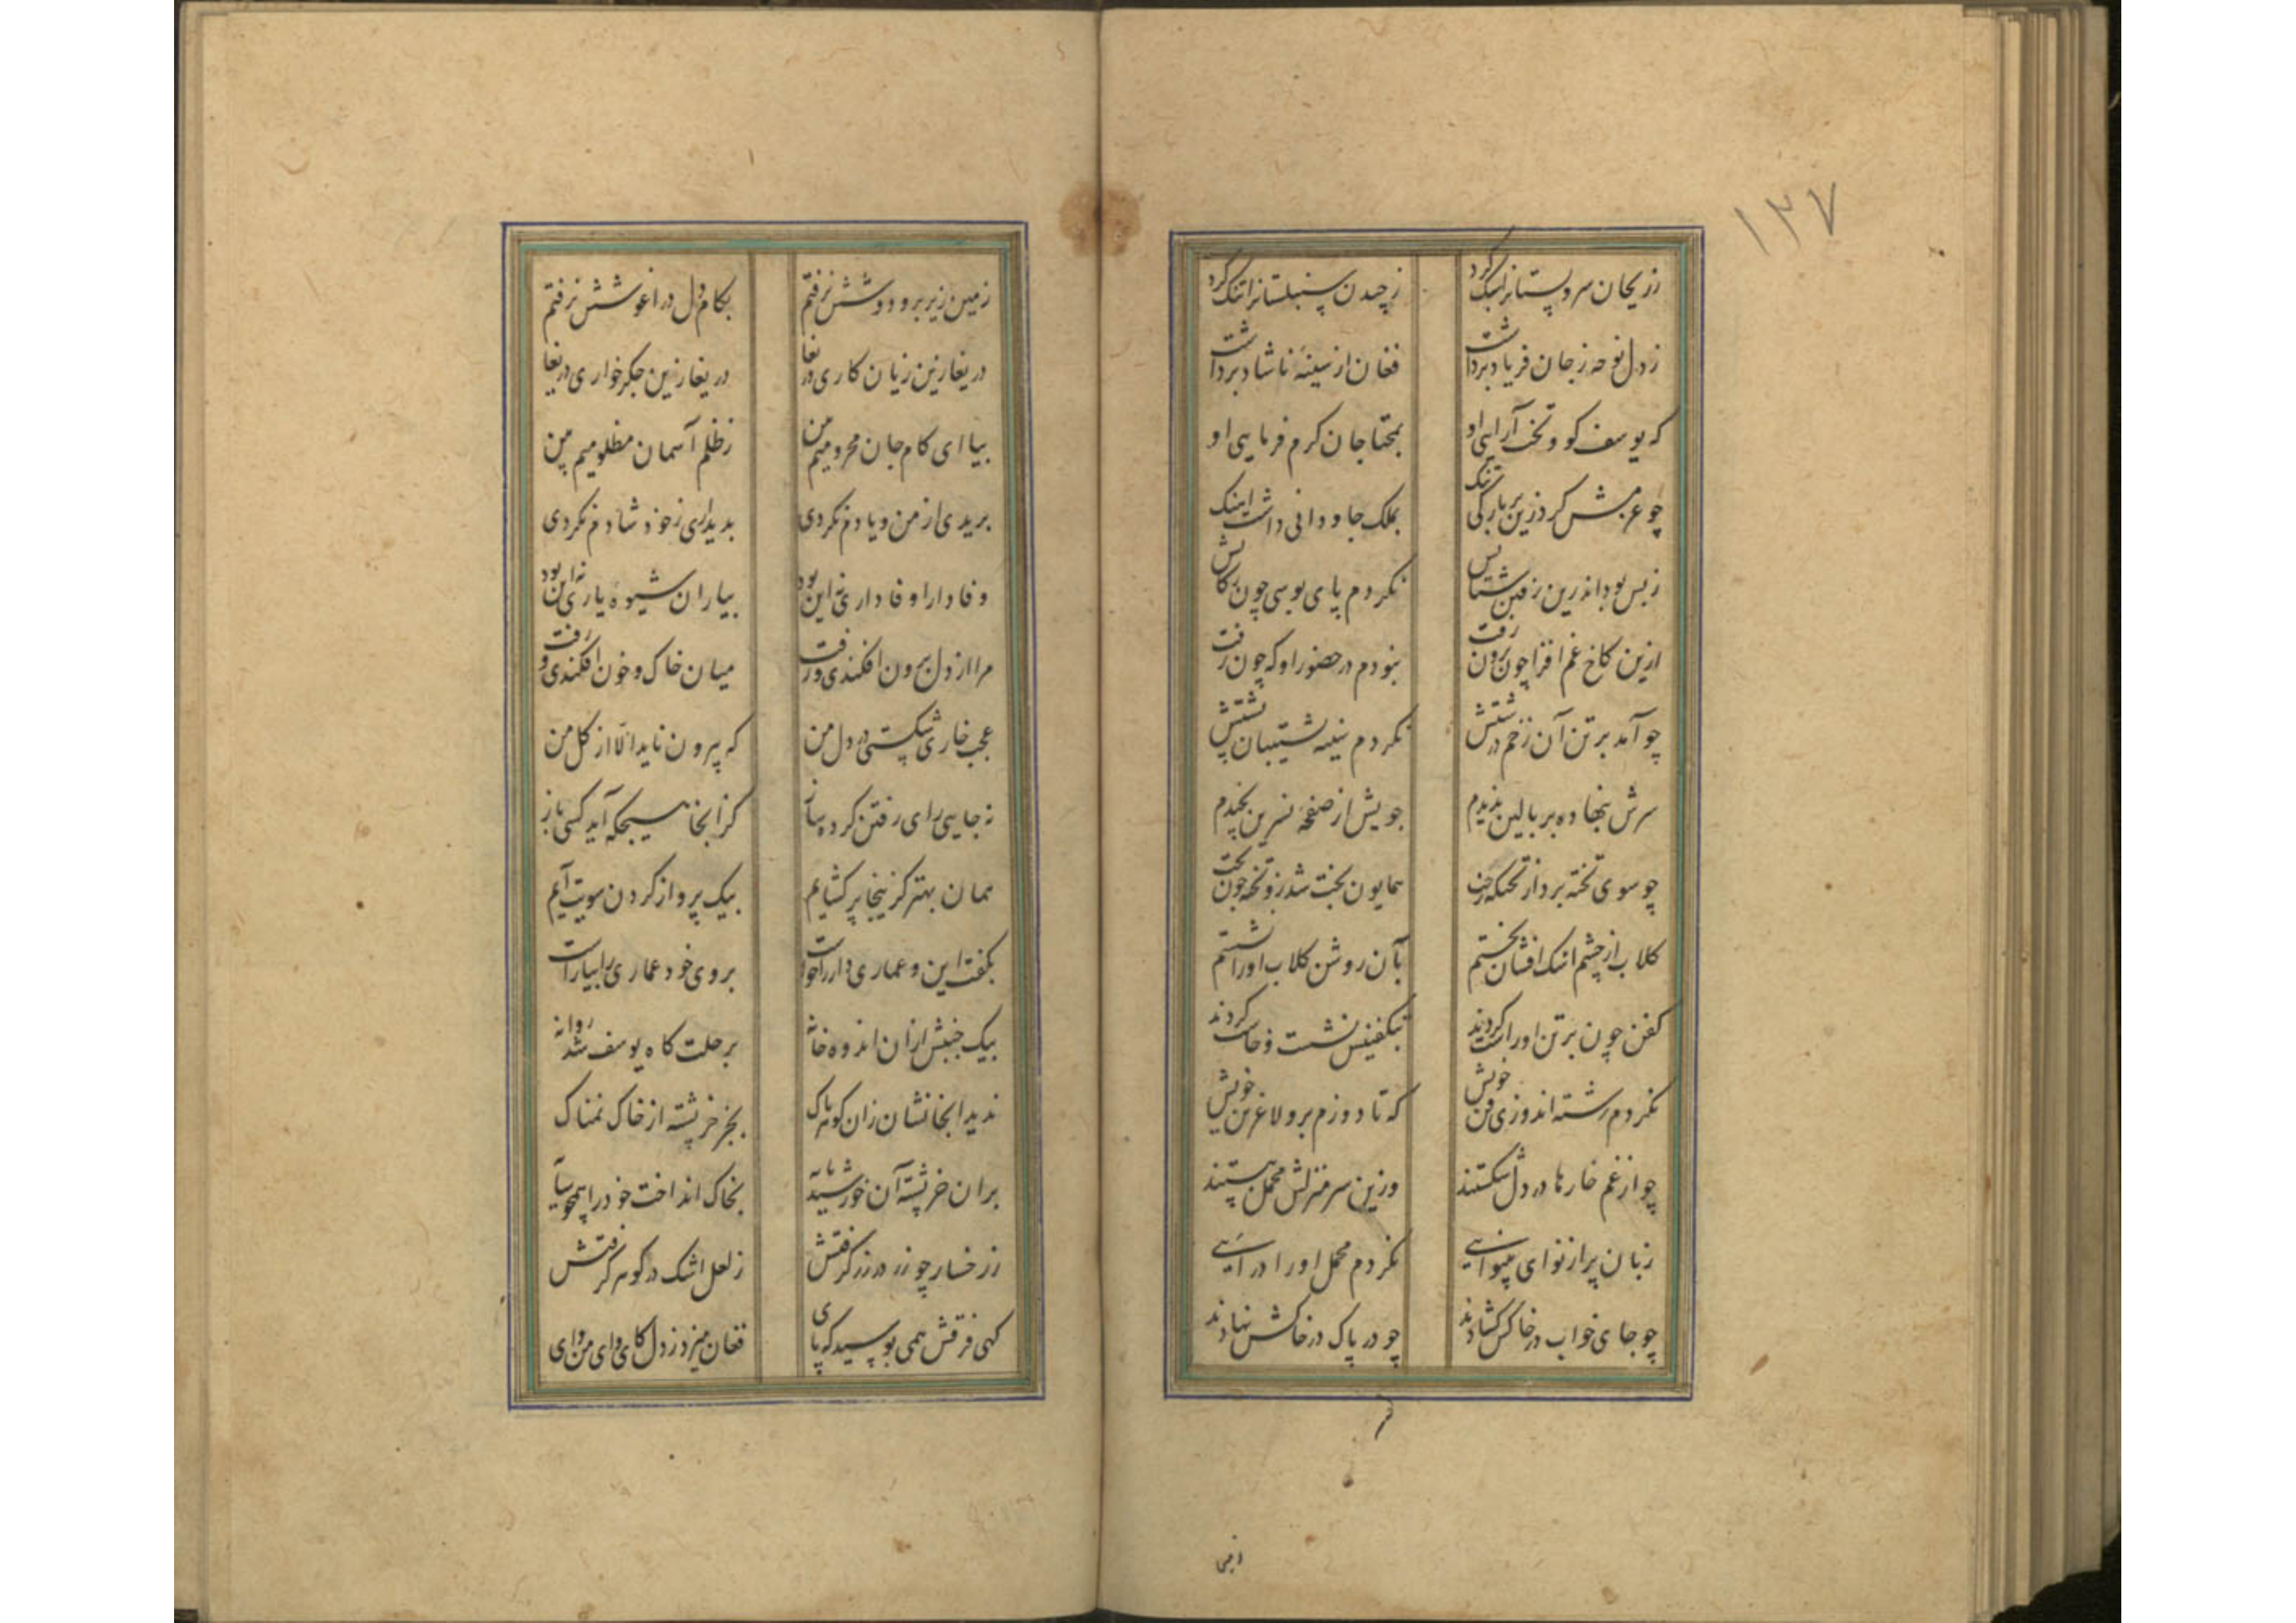 ۱۳۷
ز ریحان سروبستانرا سبک کرد
ز چیدن سنبلستانرا تنک کرد
ز دل نوحه ز جان فریاد برداشت
فغان از سینهٔ ناشاد برداشت
که یوسف کو و تخت آرایی او
بمحتاجان کرم فرمایی او
چو عزمش کرد زین بارکی تنک
بملک جاودانی داشت اینک
ز بس بود اندرین رفتن شتابش
نکردم پای بوسی چون رکابش
ازین کاخ غم افزا چون برون رفت
نبودم در حضور او که چون رفت
چو آمد بر تن آن زخم درشتش
نکردم سینه پشتیبان پشتش
سرش بنهاده بر بالین ندیدم
خویش از صفحهٔ نسرین نچیدم
چو سوی تخته برد از تختکه رخت
همایون بخت شد زو تخته چون تخت
کلاب از چشم اشک افشان نجستم
بآن روشن کلاب او را نشستم
کفن چون بر تن او راست کردند
بتکفینش نشست و خاست کردند
نکردم رشته اندوزی فن خویش
که تا دوزم برو لاغر تن خویش
چو از غم خارها در دل شکستند
وزین سر منزلش محمل ببستند
زبان پر از نوای بینوایی
نکردم محمل او را درایی
چو جای خواب در خاکش کشادند
چو در پاک در خاکش نهادند
زمین
زمین زیر برو دوشش نرفتم
بکام دل در آغوشش نرفتم
دریغا زین زیان کاری دریغا
دریغا زین جکرخواری دریغا
بیا ای کام جان محرومیم بین
ز ظلم آسمان مظلومیم بین
بریدی از من و یادم نکردی
بدیداری ز خود شادم نکردی
وفادارا وفاداری نه این بود
بیاران شیوهٔ یاری نه این بود
مرا از دل برون افکندی و رفت
میان خاک و خون افکندی و رفت
عجب خاری شکستی در دل من
که بیرون ناید الا از کل من
نه جایی رای رفتن کردهٔ ساز
کز آنجا هیچکه آید کسی باز
همان بهتر کزینجا پر کشایم
بیک پرواز کردن سویت آیم
بکفت این و عماری دار را خواست
بروی خود عماری را بیاراست
بیک جنبش از آن اندوه خانه
برحلت کاه یوسف شد روانه
ندید آنجا نشان زان کوهر پاک
بجز خرپشته از خاک نمناک
بران خرپشته آن خورشید پایه
بخاک انداخت خود را همچو سایه
ز رخسار چو زر در زر کرفتش
ز لعل اشک در کوهر کرفتش
کهی فرقش همی بوسید که پای
فغان میزد ز دل کای وای من وای